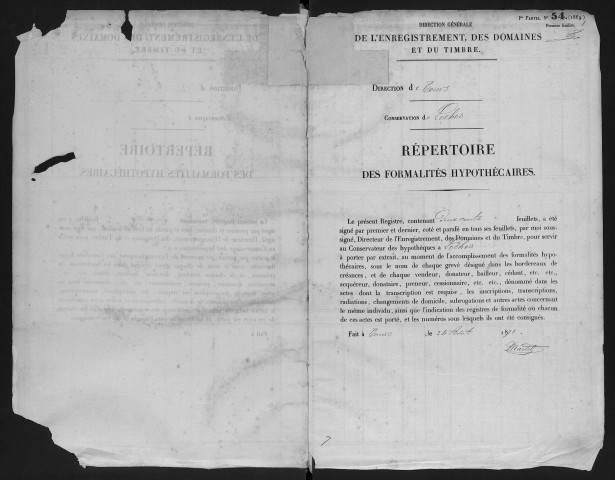 Ire Partie. No 54. (1884)
Premier feuillet.
DIRECTION GÉNÉRALE
DE L'ENREGISTREMENT, DES DOMAINES
ET DU TIMBRE.
DIRECTION de Tours
CONSERVATION de Loches
RÉPERTOIRE
DES FORMALITÉS HYPOTHÉCAIRES.
Le présent Registre, contenant Deux cents feuillets, a été
signé par premier et dernier, coté et parafé en tous ses feuillets, par moi sous-
signé, Directeur de l'Enregistrement, des Domaines et du Timbre, pour servir
au Conservateur des hypothèques à Loches
à porter par extrait, au moment de l'accomplissement des formalités hypo-
thécaires, sous le nom de chaque grevé désigné dans les bordereaux de
créances, et de chaque vendeur, donateur, bailleur, cédant, etc. etc.,
acquéreur, donataire, preneur, cessionnaire, etc. etc., dénommé dans les
actes dont la transcription est requise, les inscriptions, transcriptions,
radiations, changements de domicile, subrogations et autres actes concernant
le même individu, ainsi que l'indication des registres de formalité où chacun
de ces actes est porté, et les numéros sous lesquels ils ont été consignés.
Fait à Tours le 24 187